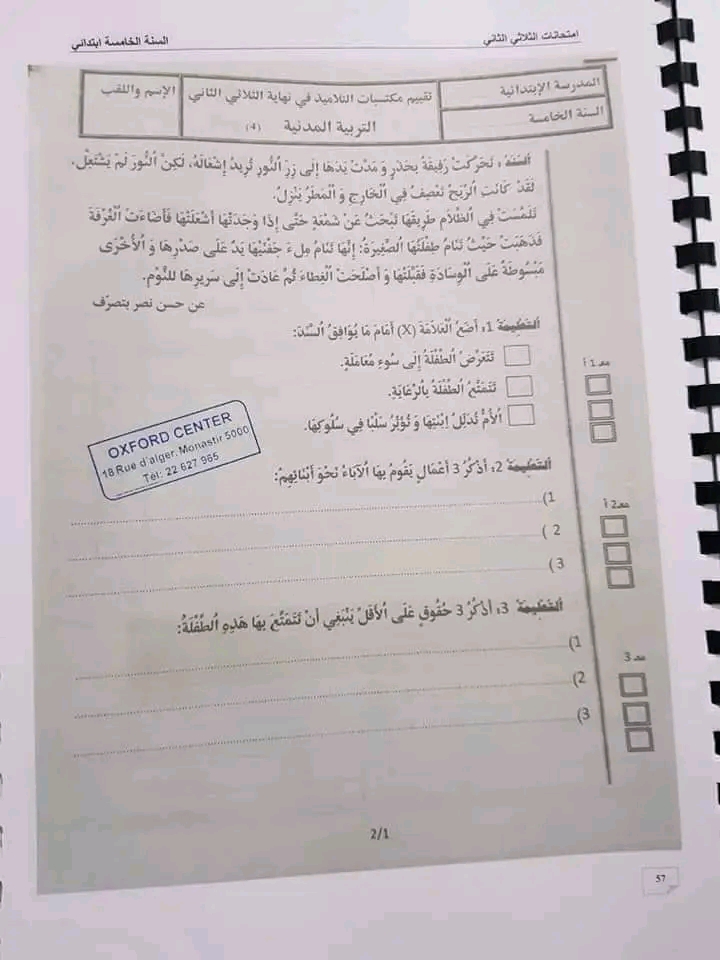 امتحانات الثلاثي الثاني
السنة الخامسة ابتدائي
المدرسة الإبتدائية
السنة الخامسة
تقييم مكتسبات التلاميذ في نهاية الثلاثي الثاني
التربية المدنية (4)
الإسم واللقب
السند : تَحَرَّكَتْ رَفِيقَةُ بِحَذَرٍ وَ مَدَّتْ يَدَهَا إِلَى زِرِّ النُّورِ تُرِيدُ إِشْعَالَهُ، لَكِنَّ النُّورَ لَمْ يَشْتَعِلْ.
لَقَدْ كَانَتْ الرِّيحُ تَعْصِفُ فِي الْخَارِجِ وَ الْمَطَرُ يَنْزِلُ.
تَلَمَّسَتْ فِي الظَّلَامِ طَرِيقَهَا تَبْحَثُ عَنْ شَمْعَةٍ حَتَّى إِذَا وَجَدَتْهَا أَشْعَلَتْهَا فَأَضَاءَتْ الْغُرْفَةَ
فَذَهَبَتْ حَيْثُ تَنَامُ طِفْلَتُهَا الصَّغِيرَةُ: إِنَّهَا تَنَامُ مِلْءَ جَفْنَيْهَا يَدٌ عَلَى صَدْرِهَا وَ الْأُخْرَى
مَبْسُوطَةٌ عَلَى الْوِسَادَةِ فَقَبَّلَتْهَا وَ أَصْلَحَتْ الْغِطَاءَ ثُمَّ عَادَتْ إِلَى سَرِيرِهَا لِلنَّوْمِ.
عن حسن نصر بتصرّف
التعليمة 1: أَضَعُ الْعَلَامَةَ (X) أَمَامَ مَا يُوَافِقُ السَّنَدَ:
تَتَعَرَّضُ الطِّفْلَةُ إِلَى سُوءِ مُعَامَلَةٍ.
تَتَمَتَّعُ الطِّفْلَةُ بِالرِّعَايَةِ.
الْأُمُّ تُدَلِّلُ اِبْنَتَهَا وَ تُؤَثِّرُ سَلْبًا فِي سُلُوكِهَا.
مع 1 أ
OXFORD CENTER
18 Rue d'alger, Monastir 5000
Tél: 22 627 965
التعليمة 2: أَذْكُرُ 3 أَعْمَالٍ يَقُومُ بِهَا الْآبَاءُ نَحْوَ أَبْنَائِهِمْ:
(1
(2
(3
مع 2 أ
التعليمة 3: أَذْكُرُ 3 حُقُوقٍ عَلَى الْأَقَلِّ يَنْبَغِي أَنْ تَتَمَتَّعَ بِهَا هَذِهِ الطِّفْلَةُ:
(1
(2
(3
مع 3
2/1
57